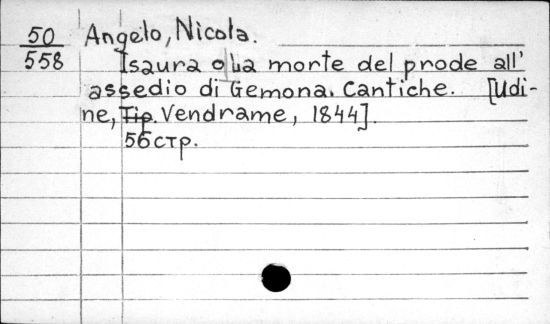 50 Angelo, Nicola.
558 Isaura o La morte del prode all'
assedio di Gemona. Cantiche. [Udi-
ne, Tip. Vendrame, 1844].
56 стр.